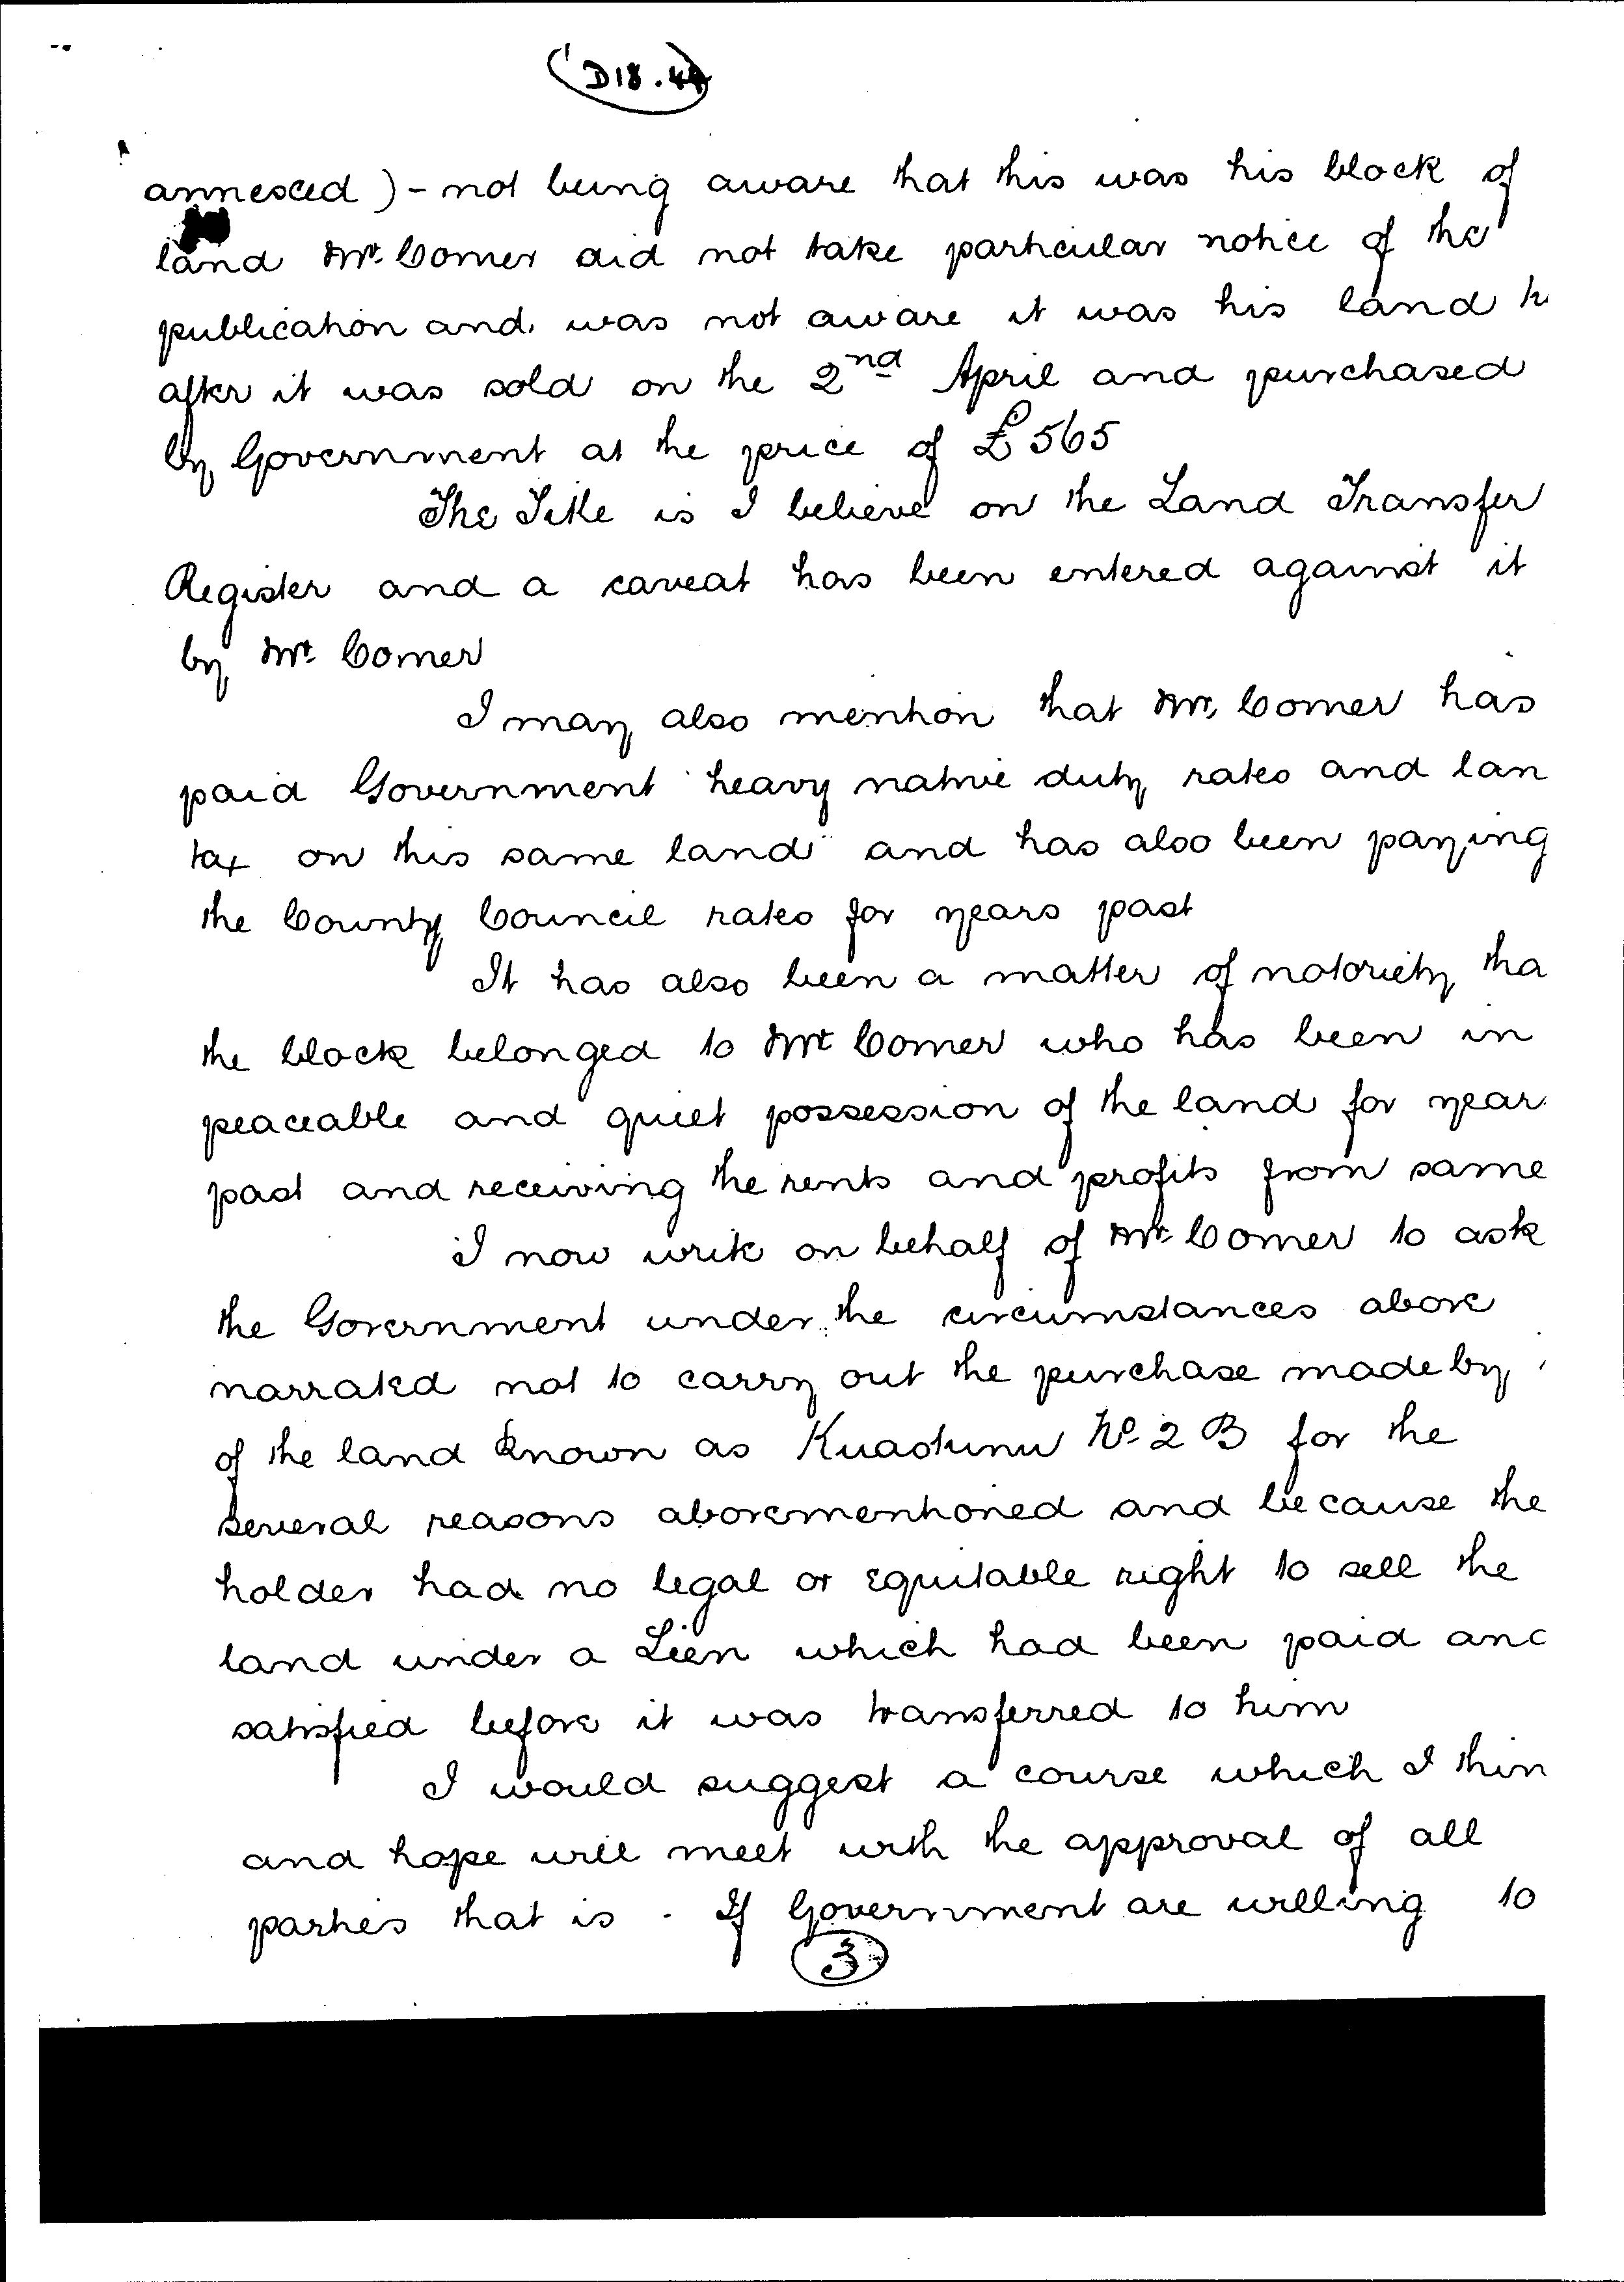 D18.44
annexed) - not being aware that this was his block of
land Mr. Comer did not take particular notice of the
publication and was not aware it was his land
after it was sold on the 2nd April and purchased
by Government at the price of £565
The Title is I believe on the Land Transfer
Register and a caveat has been entered against it
by Mr. Comer
I may also mention that Mr. Comer has
paid Government heavy native duty rates and lan
tax on this same land and has also been paying
the County Council rates for years past
It has also been a matter of notoriety tha
the block belonged to Mr Comer who has been in
peaceable and quiet possession of the land for year
past and receiving the rents and profits from same
I now write on behalf of Mr. Comer to ask
the Government under the circumstances above
narrated not to carry out the purchase made by
of the land known as Kuaotunu No. 2 B for the
several reasons abovementioned and because the
holder had no legal or equitable right to sell the
land under a Lien which had been paid and
satisfied before it was transferred to him
I would suggest a course which I thin
and hope will meet with the approval of all
parties that is - If Government are willing to
3